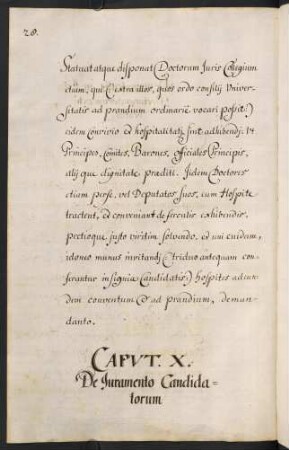 28.
Statuat atque disponat Doctorum Juris Collegium
etiam, qui Extra illos, quos ordo consilij Univer-
sitatis ad prandium ordinariè vocari possit:
eidem Convivio et hospitalitati sint adhibendi, Vt
Principes, Comites, Barones, Officiales Principis,
alijque dignitate præditi. Iidem Doctores
etiam per se, vel Deputatos suos, cum Hospite
tractent, et conveniant de ferculis exhibendis,
pretioque justo viritim solvendo, et uni eidem,
idoneo munus invitandj Triduo antequam con-
ferantur insignia Candidatis, hospites ad eun-
dem conventum Et ad prandium, deman-
danto.
CAPVT. X.
De Juramento Candida=
torum